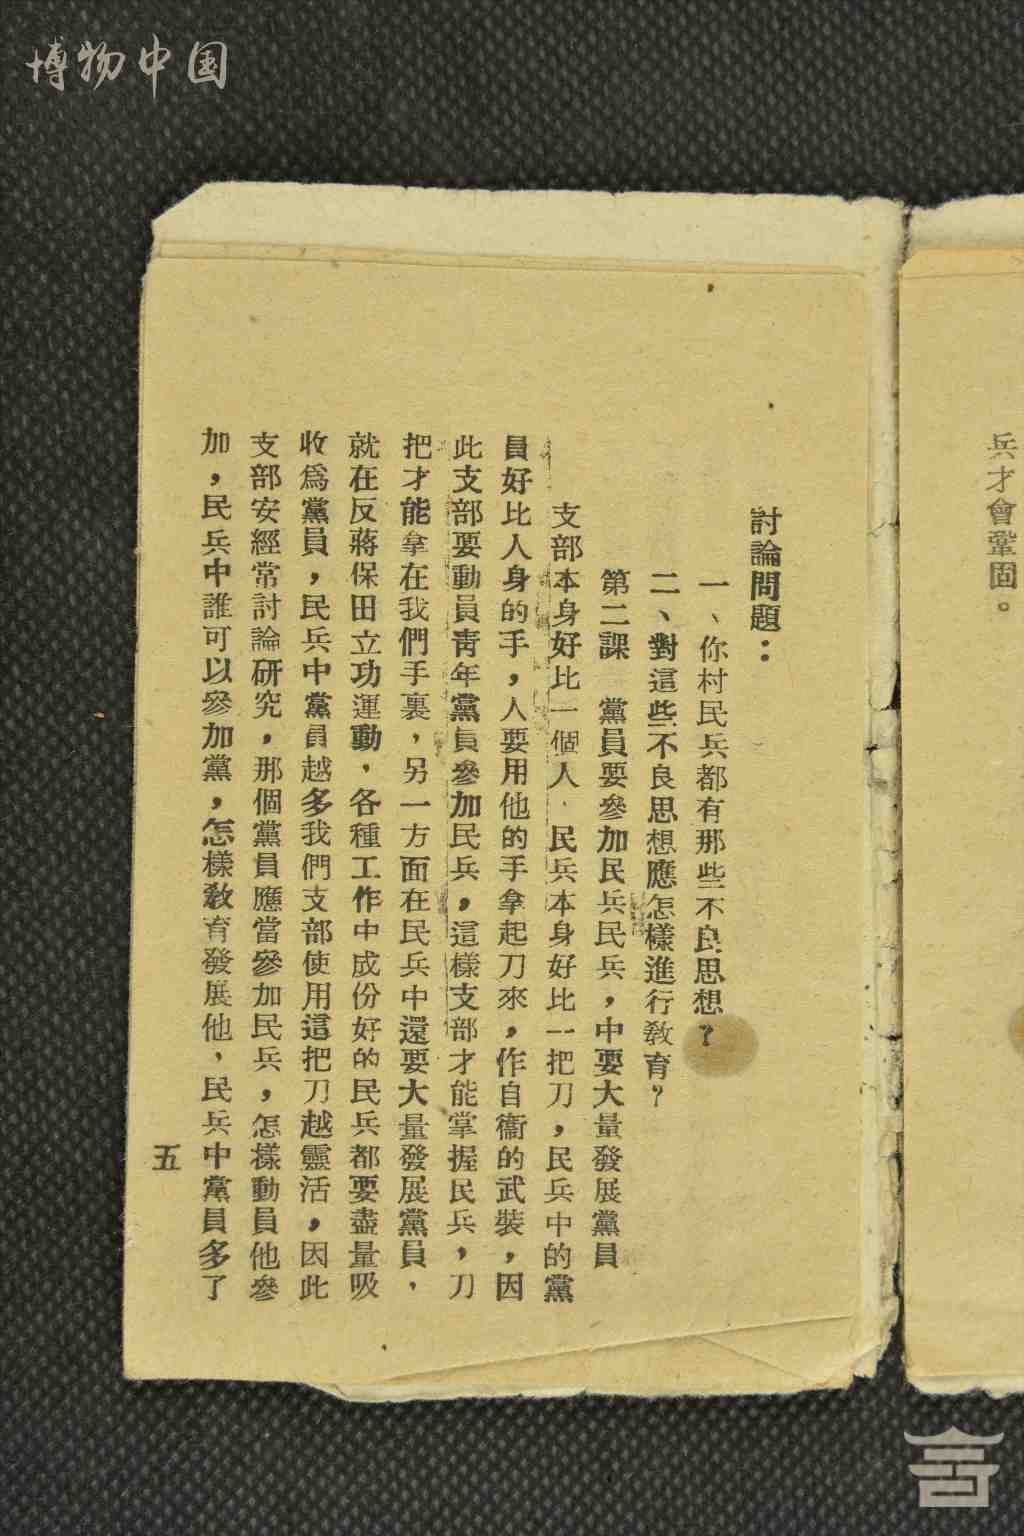 博物中国
兵才會鞏固。
討論問題：
一、你村民兵都有那些不良思想？
二、對這些不良思想應怎樣進行敎育？
第二課　黨員要參加民兵民兵，中要大量發展黨員
支部本身好比一個人，民兵本身好比一把刀，民兵中的黨
員好比人身的手，人要用他的手拿起刀來，作自衞的武裝，因
此支部要動員靑年黨員參加民兵，這樣支部才能掌握民兵，刀
把才能拿在我們手裏，另一方面在民兵中還要大量發展黨員，
就在反蔣保田立功運動，各種工作中成份好的民兵都要盡量吸
收爲黨員，民兵中黨員越多我們支部使用這把刀越靈活，因此
支部安經常討論研究，那個黨員應當參加民兵，怎樣動員他參
加，民兵中誰可以參加黨，怎樣敎育發展他，民兵中黨員多了
五